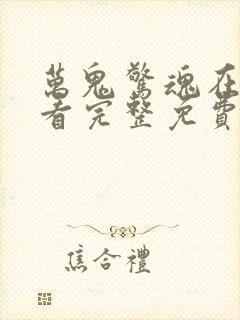 萬鬼驚魂在
看完整免費
焦合禮